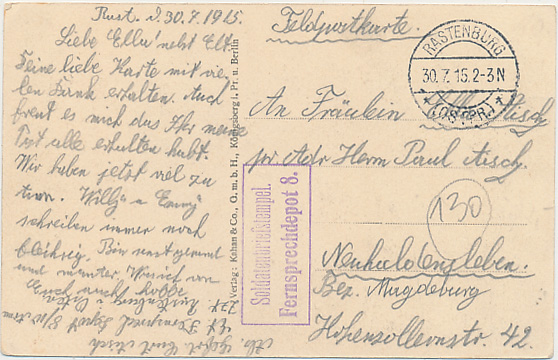 Rast. d. 30.7.1915.
Liebe Ella! nebst Elt.
Deine liebe Karte mit vie-
len Dank erhalten. Auch
freut es mich das Ihr meine
Post alle erhalten habt.
Wir haben jetzt viel zu
tun. Willy u.
schreiben immer noch
Bin noch gesund
und munter
Euch auch hoffe
Feldpostkarte.
RASTENBURG
30.7.15.2-3N
(OSTPR.)
An Fräulein
Ella Aisch
pr Adr Herrn Paul Aisch.
130
Neuhaldensleben.
Bez. Magdeburg
Hohenzollernstr. 42.
Soldatenbriefstempel.
Fernsprechdepot 8.
Verlag: Kahan & Co., G. m. b. H., Königsberg i. Pr. u. Berlin